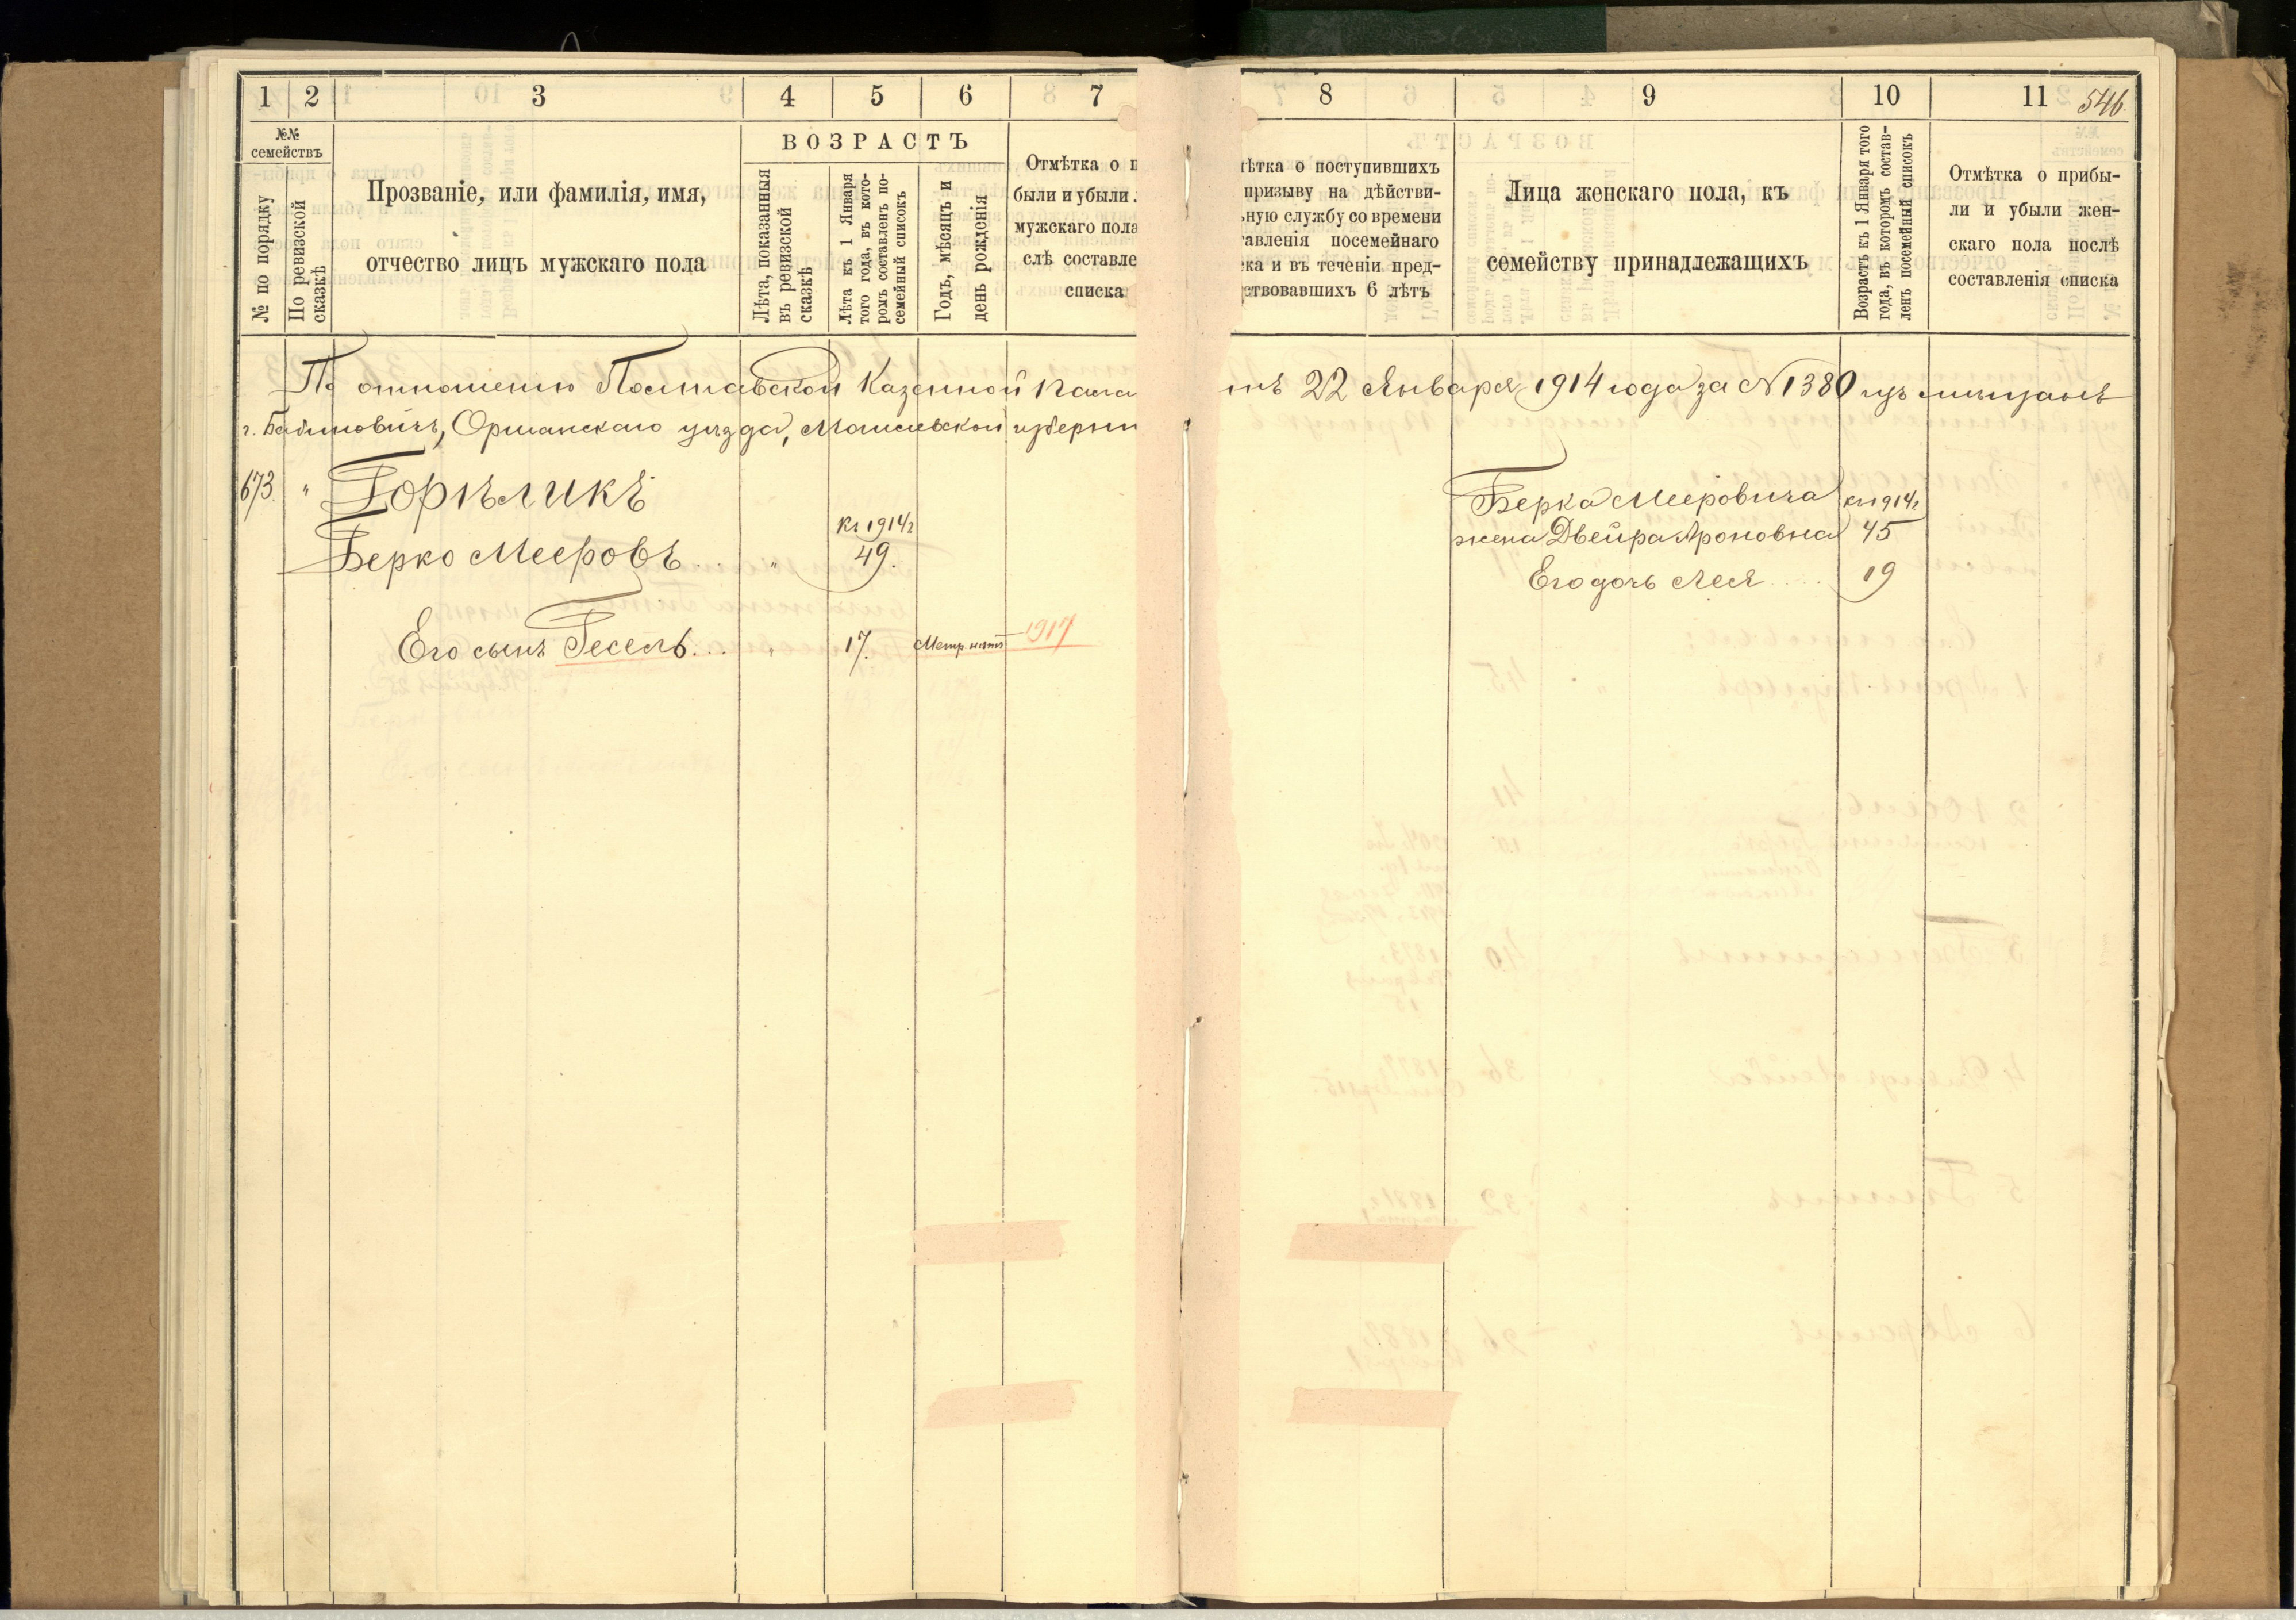 1 2 3 4 5 6 7
№№ семействъ
№ по порядку
По ревизской сказкѣ
Прозваніе, или фамилія, имя,
отчество лицъ мужскаго пола
ВОЗРАСТЪ
Лѣта, показанныя
въ ревизской
сказкѣ
Лѣта къ 1 Января
того года, въ кото-
ромъ составленъ по-
семейный списокъ
Годъ, мѣсяцъ и
день рожденія
Отмѣтка о п
были и убыли
мужскаго пола
слѣ составле
списка
По отношенію Полтавской Казенной Пала
г. Бабиновичъ, Оршанскаго уѣзда, Могилевской губерніи
673. " Горѣликъ
къ 1914 г
Берко Мееровъ... " 49.
Его сынъ Гесель... " 17. Метр. нѣтъ 1917
8 9 10 11 546.
ѣтка о поступившихъ
призыву на дѣйстви-
ную службу со времени
тавленія посемейнаго
ска и въ теченіи пред-
ствовавшихъ 6 лѣтъ
Лица женскаго пола, къ
семейству принадлежащихъ
Возрастъ къ 1 Января того
года, въ которомъ состав-
ленъ посемейный списокъ
Отмѣтка о прибы-
ли и убыли жен-
скаго пола послѣ
составленія списка
22 Января 1914 года за N 1380 изъ мѣщанъ
Берка Мееровича къ 1914 г.
жена Двейра Ароновна 45
Его дочь Леся .... 19